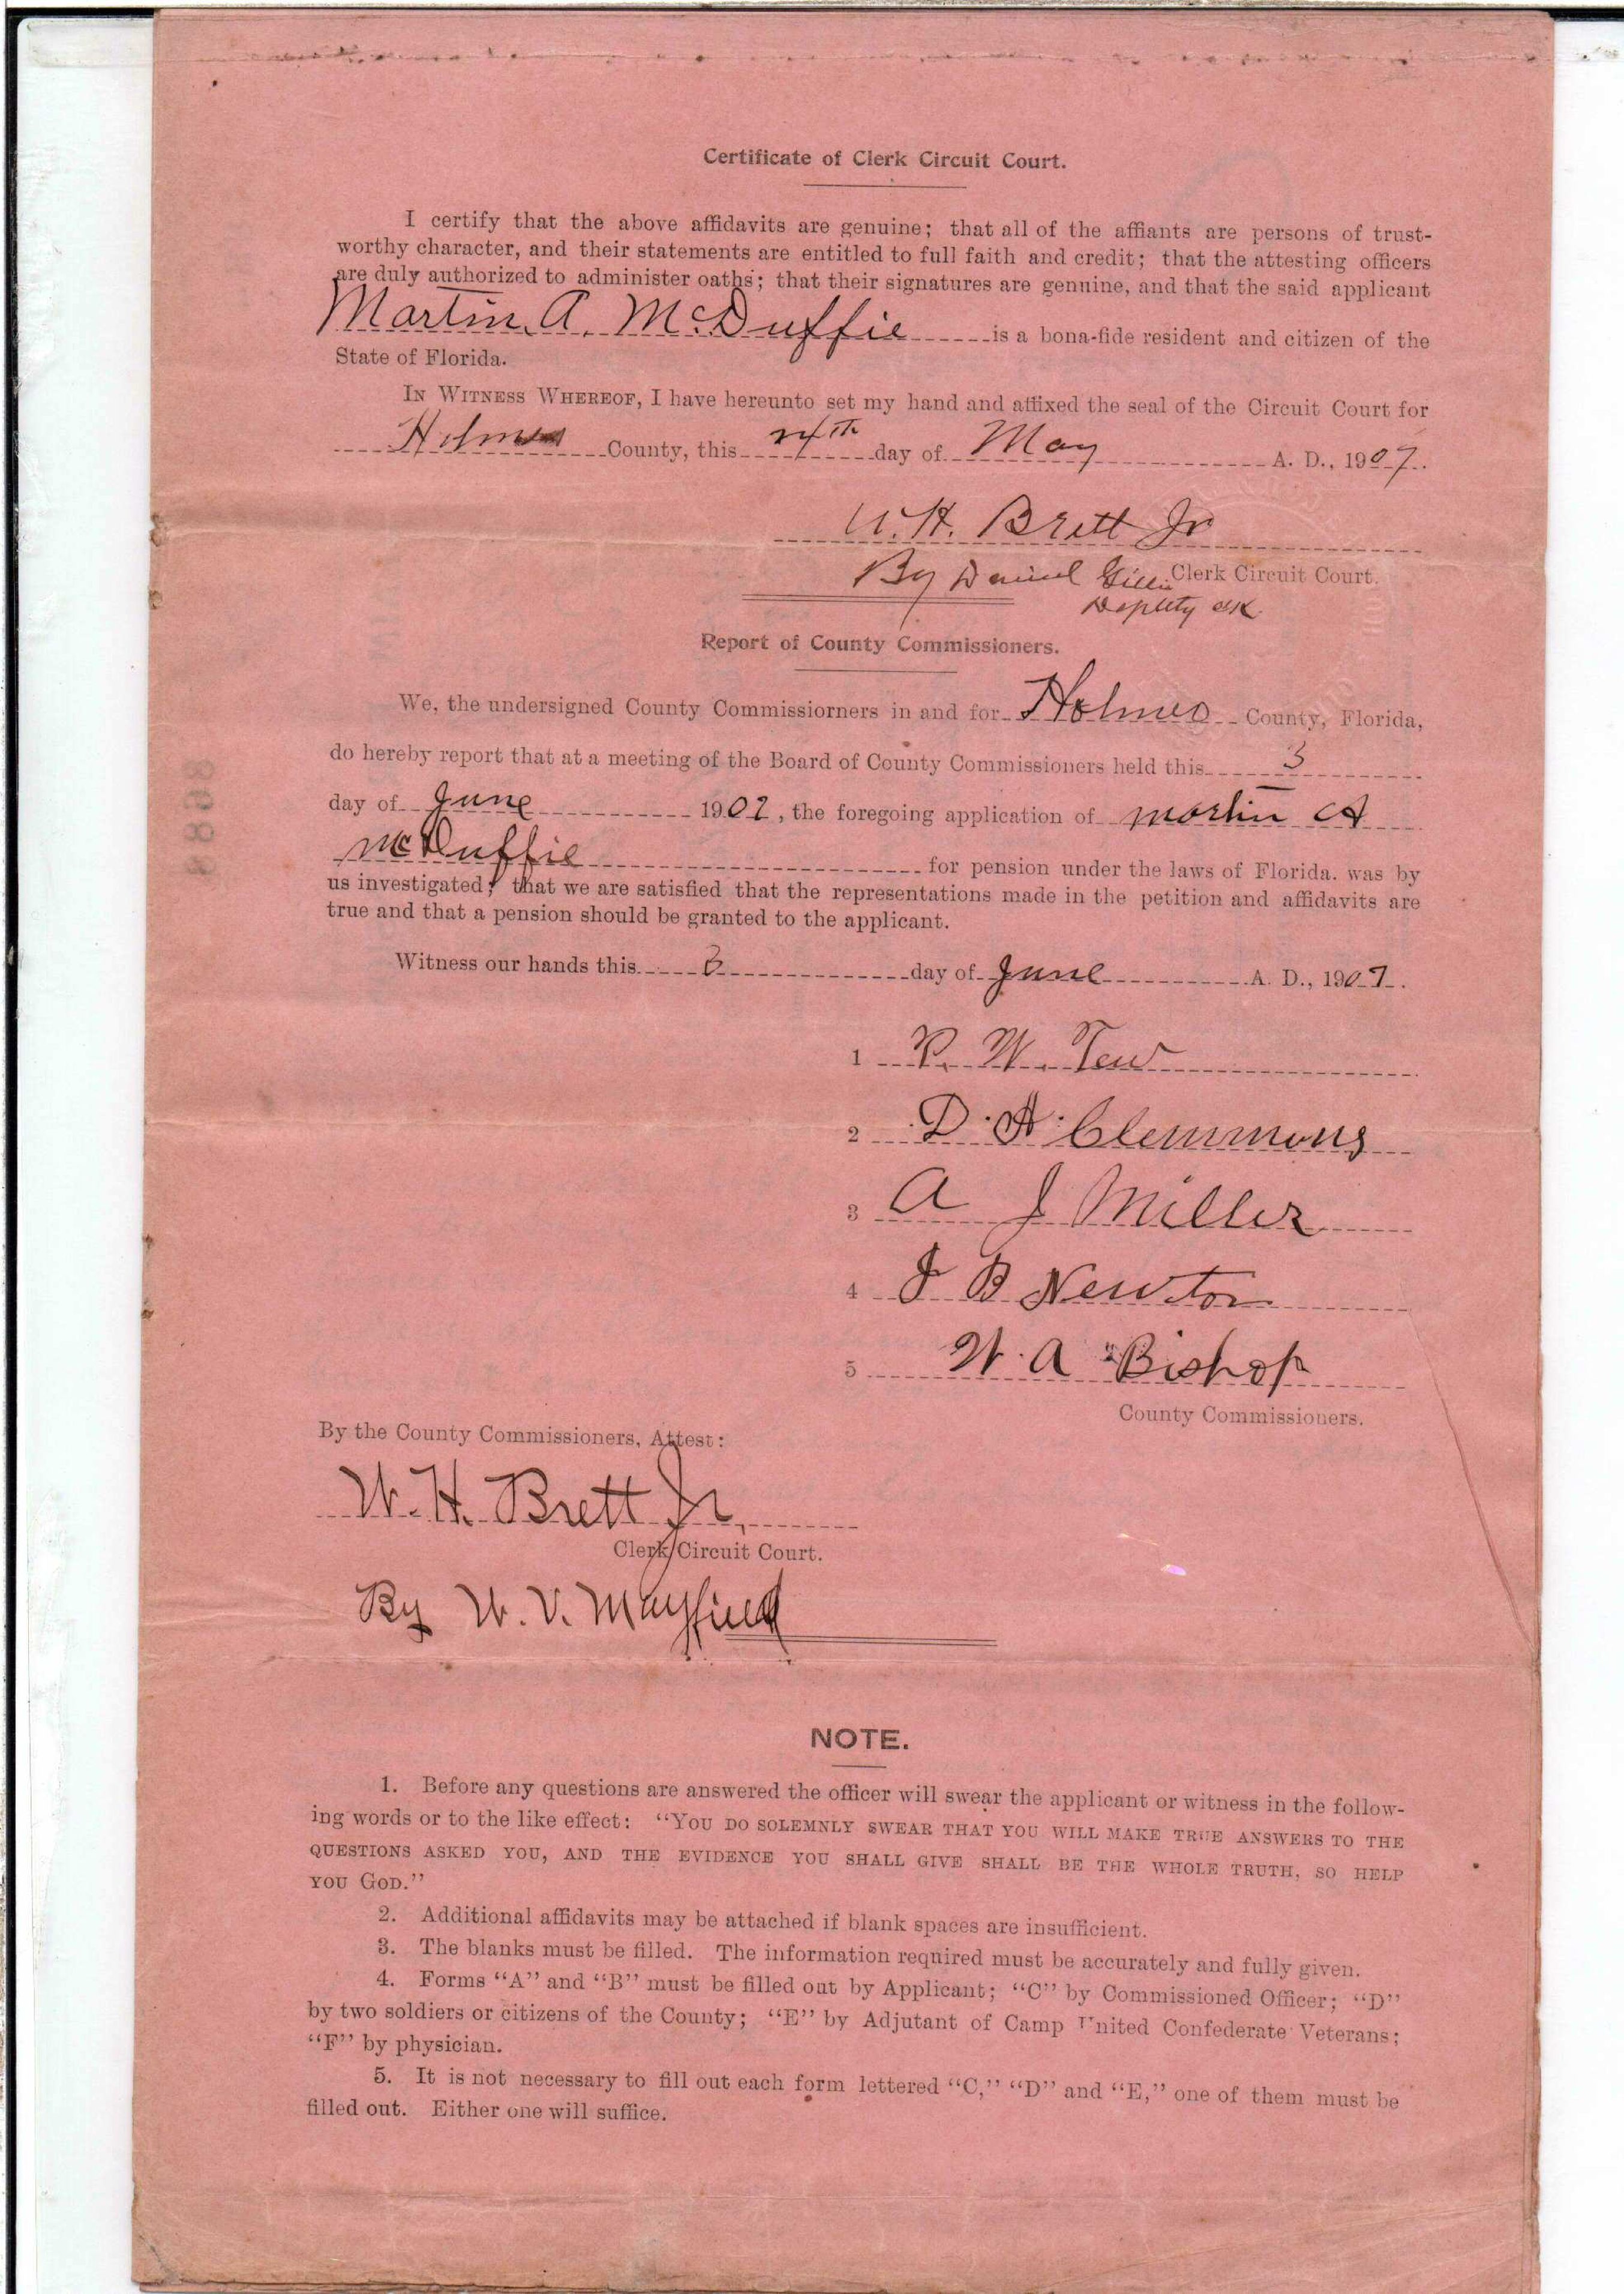 Certificate of Clerk Circuit Court.
I certify that the above affidavits are genuine; that all of the affiants are persons of trust-
worthy character, and their statements are entitled to full faith and credit; that the attesting officers
are duly authorized to administer oaths; that their signatures are genuine, and that the said applicant
Martin. A. McDuffie is a bona-fide resident and citizen of the
State of Florida.
IN WITNESS WHEREOF, I have hereunto set my hand and affixed the seal of the Circuit Court for
Holmes County, this day of May A. D., 1907.
W. H. Brett Jr
By Daniel Clerk Circuit Court.
Deputy Clk
Report of County Commissioners.
We, the undersigned County Commissiorners in and for Holmes County, Florida,
do hereby report that at a meeting of the Board of County Commissioners held this 3
day of June 1907, the foregoing application of Martin A
McDuffie for pension under the laws of Florida. was by
us investigated; that we are satisfied that the representations made in the petition and affidavits are
true and that a pension should be granted to the applicant.
Witness our hands this 3 day of June A. D., 1907.
1 P. W. Tew
2 D. A. Clemmons
3 A J Miller
4 J B Newton
5 W. A Bishop
County Commissioners.
By the County Commissioners, Attest:
W. H. Brett Jr,
Clerk Circuit Court.
By W. V. Mayfield
NOTE.
1. Before any questions are answered the officer will swear the applicant or witness in the follow-
ing words or to the like effect: “YOU DO SOLEMNLY SWEAR THAT YOU WILL MAKE TRUE ANSWERS TO THE
QUESTIONS ASKED YOU, AND THE EVIDENCE YOU SHALL GIVE SHALL BE THE WHOLE TRUTH, SO HELP
YOU GOD.”
2. Additional affidavits may be attached if blank spaces are insufficient.
3. The blanks must be filled. The information required must be accurately and fully given.
4. Forms “A” and “B” must be filled out by Applicant; “C” by Commissioned Officer; “D”
by two soldiers or citizens of the County; “E” by Adjutant of Camp United Confederate Veterans;
“F” by physician.
5. It is not necessary to fill out each form lettered “C,” “D” and “E,” one of them must be
filled out. Either one will suffice.